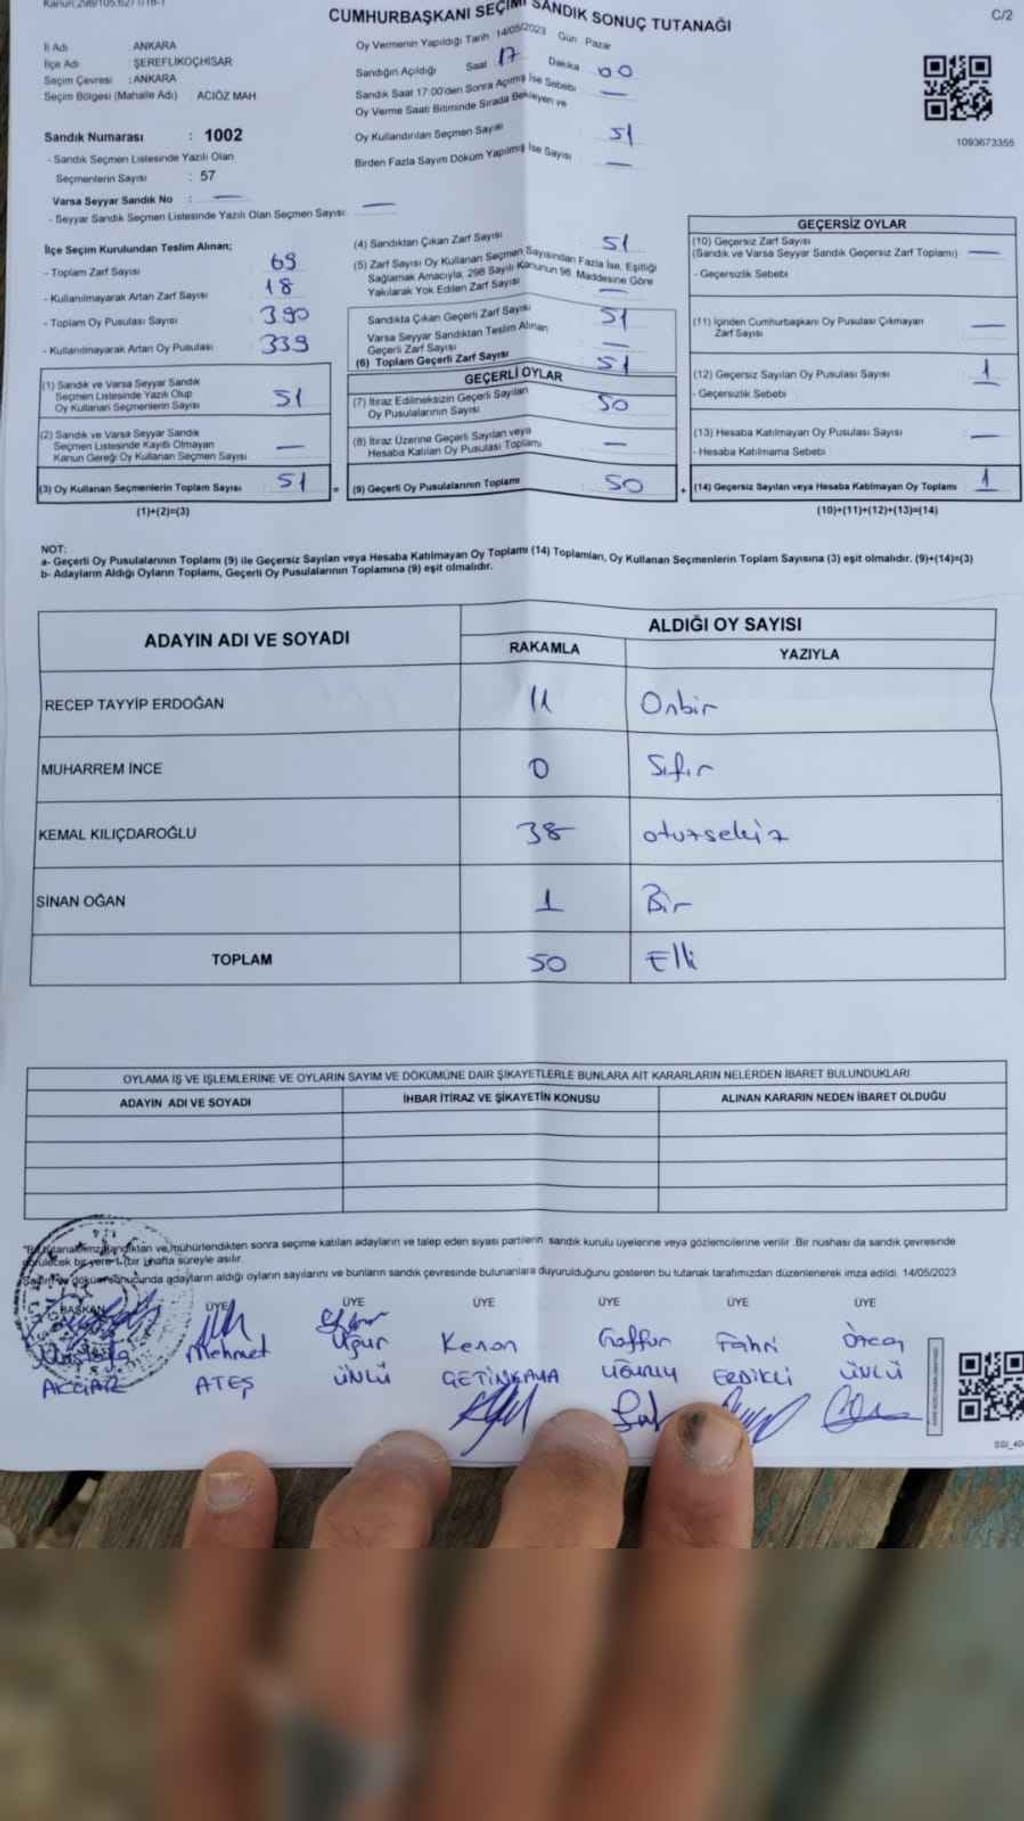 CUMHURBAŞKANI SEÇİMİ SANDIK SONUÇ TUTANAĞI
C/2
İl Adı ANKARA
İlçe Adı : ŞEREFLİKOÇHİSAR
Seçim Çevresi : ANKARA
Seçim Bölgesi (Mahalle Adı) ACIÖZ MAH
Sandık Numarası : 1002
- Sandık Seçmen Listesinde Yazılı Olan
Seçmenlerin Sayısı : 57
Varsa Seyyar Sandık No : —
- Seyyar Sandık Seçmen Listesinde Yazılı Olan Seçmen Sayısı: —
Oy Vermenin Yapıldığı Tarih 14/05/2023 Gün Pazar
Sandığın Açıldığı Saat 17 Dakika 00
Sandık Saat 17:00'den Sonra Açılmış İse Sebebi —
Oy Verme Saati Bitiminde Sırada Bekleyen ve
Oy Kullandırılan Seçmen Sayısı 51
Birden Fazla Sayım Döküm Yapılmış İse Sayısı —
1093673355
İlçe Seçim Kurulundan Teslim Alınan;
- Toplam Zarf Sayısı 69
- Kullanılmayarak Artan Zarf Sayısı 18
- Toplam Oy Pusulası Sayısı 390
- Kullanılmayarak Artan Oy Pusulası 339
(1) Sandık ve Varsa Seyyar Sandık
Seçmen Listesinde Yazılı Olup
Oy Kullanan Seçmenlerin Sayısı 51
(2) Sandık ve Varsa Seyyar Sandık
Seçmen Listesinde Kayıtlı Olmayan
Kanun Gereği Oy Kullanan Seçmen Sayısı —
(3) Oy Kullanan Seçmenlerin Toplam Sayısı 51
(1)+(2)=(3)
(4) Sandıktan Çıkan Zarf Sayısı 51
(5) Zarf Sayısı Oy Kullanan Seçmen Sayısından Fazla İse, Eşitliği
Sağlamak Amacıyla, 298 Sayılı Kanunun 98. Maddesine Göre
Yakılarak Yok Edilen Zarf Sayısı —
Sandıkta Çıkan Geçerli Zarf Sayısı 51
Varsa Seyyar Sandıktan Teslim Alınan
Geçerli Zarf Sayısı —
(6) Toplam Geçerli Zarf Sayısı 51
GEÇERLİ OYLAR
(7) İtiraz Edilmeksizin Geçerli Sayılan
Oy Pusulalarının Sayısı 50
(8) İtiraz Üzerine Geçerli Sayılan veya
Hesaba Katılan Oy Pusulası Toplamı —
= (9) Geçerli Oy Pusulalarının Toplamı 50
GEÇERSİZ OYLAR
(10) Geçersiz Zarf Sayısı
(Sandık ve Varsa Seyyar Sandık Geçersiz Zarf Toplamı) —
- Geçersizlik Sebebi
(11) İçinden Cumhurbaşkanı Oy Pusulası Çıkmayan
Zarf Sayısı —
(12) Geçersiz Sayılan Oy Pusulası Sayısı 1
- Geçersizlik Sebebi
(13) Hesaba Katılmayan Oy Pusulası Sayısı —
- Hesaba Katılmama Sebebi
+ (14) Geçersiz Sayılan veya Hesaba Katılmayan Oy Toplamı 1
(10)+(11)+(12)+(13)=(14)
NOT:
a- Geçerli Oy Pusulalarının Toplamı (9) ile Geçersiz Sayılan veya Hesaba Katılmayan Oy Toplamı (14) Toplamları, Oy Kullanan Seçmenlerin Toplam Sayısına (3) eşit olmalıdır. (9)+(14)=(3)
b- Adayların Aldığı Oyların Toplamı, Geçerli Oy Pusulalarının Toplamına (9) eşit olmalıdır.
ADAYIN ADI VE SOYADI
ALDIĞI OY SAYISI
RAKAMLA YAZIYLA
RECEP TAYYİP ERDOĞAN 11 Onbir
MUHARREM İNCE 0 Sıfır
KEMAL KILIÇDAROĞLU 38 otuzsekiz
SİNAN OĞAN 1 Bir
TOPLAM 50 Elli
OYLAMA İŞ VE İŞLEMLERİNE VE OYLARIN SAYIM VE DÖKÜMÜNE DAİR ŞİKAYETLERLE BUNLARA AİT KARARLARIN NELERDEN İBARET BULUNDUKLARI
ADAYIN ADI VE SOYADI İHBAR İTİRAZ VE ŞİKAYETİN KONUSU ALINAN KARARIN NEDEN İBARET OLDUĞU
mühürlendikten sonra seçime katılan adayların ve talep eden siyasi partilerin sandık kurulu üyelerine veya gözlemcilerine verilir. Bir nüshası da sandık çevresinde
bir yere 1 (bir) hafta süreyle asılır.
sonucunda adayların aldığı oyların sayılarını ve bunların sandık çevresinde bulunanlara duyurulduğunu gösteren bu tutanak tarafımızdan düzenlenerek imza edildi. 14/05/2023
BAŞKAN ÜYE ÜYE ÜYE ÜYE ÜYE ÜYE
Mehmet Uğur Kenan Gaffur Fahri
ATEŞ ÜNLÜ ÇETİNKAYA UĞURLU ERDİKLİ ÜNLÜ